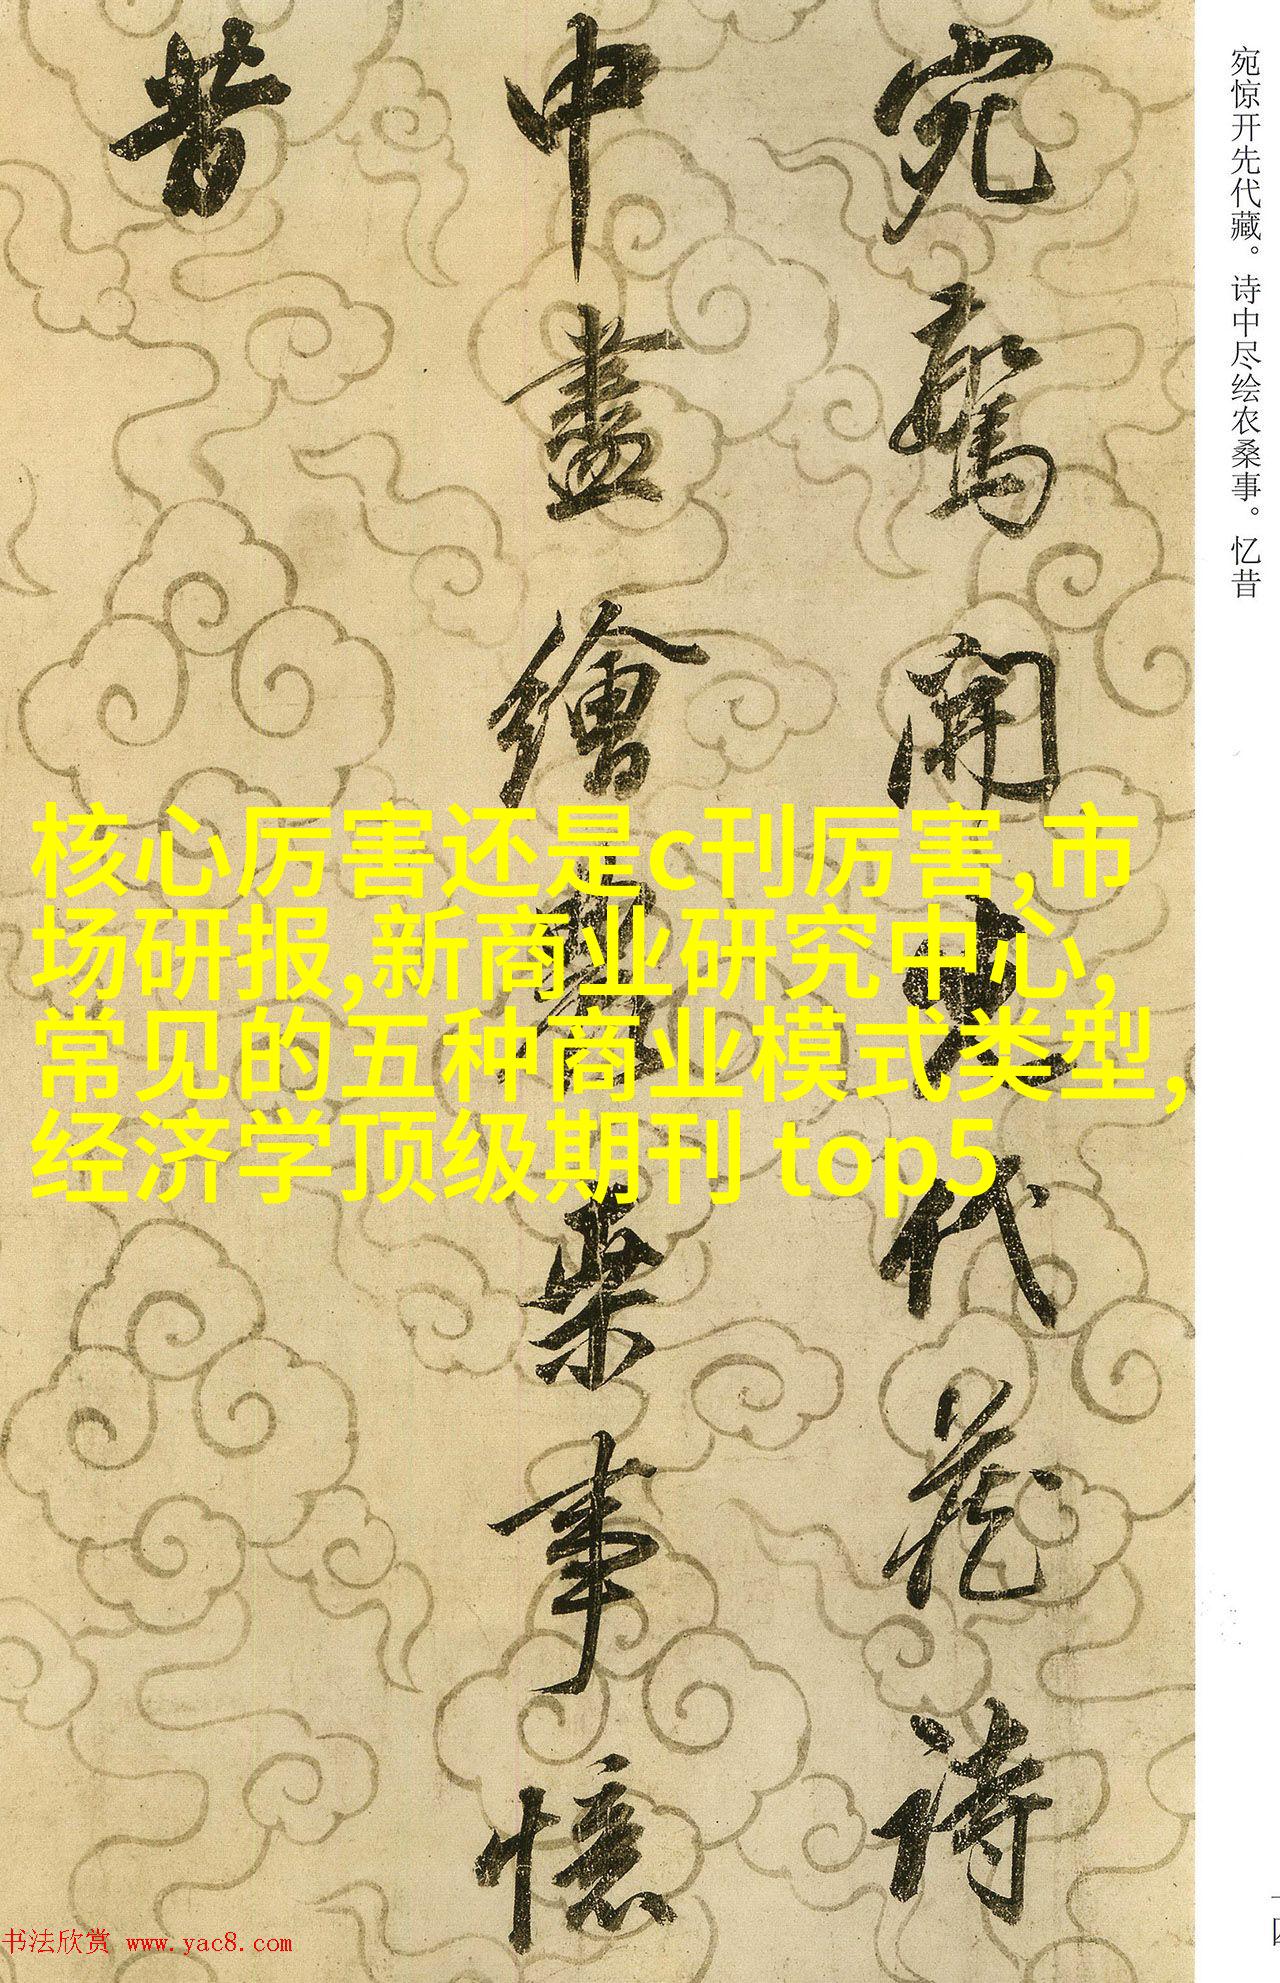 宛驚開先代藏詩
中盡繪農桒事憶
昔
宛惊开先代藏。诗中尽绘农桑事。忆昔
核心厉害还是c刊厉害,市
场研报,新商业研究中心,
常见的五种商业模式类型,
经济学顶级期刊 top5
书法欣赏 www.yac8.com